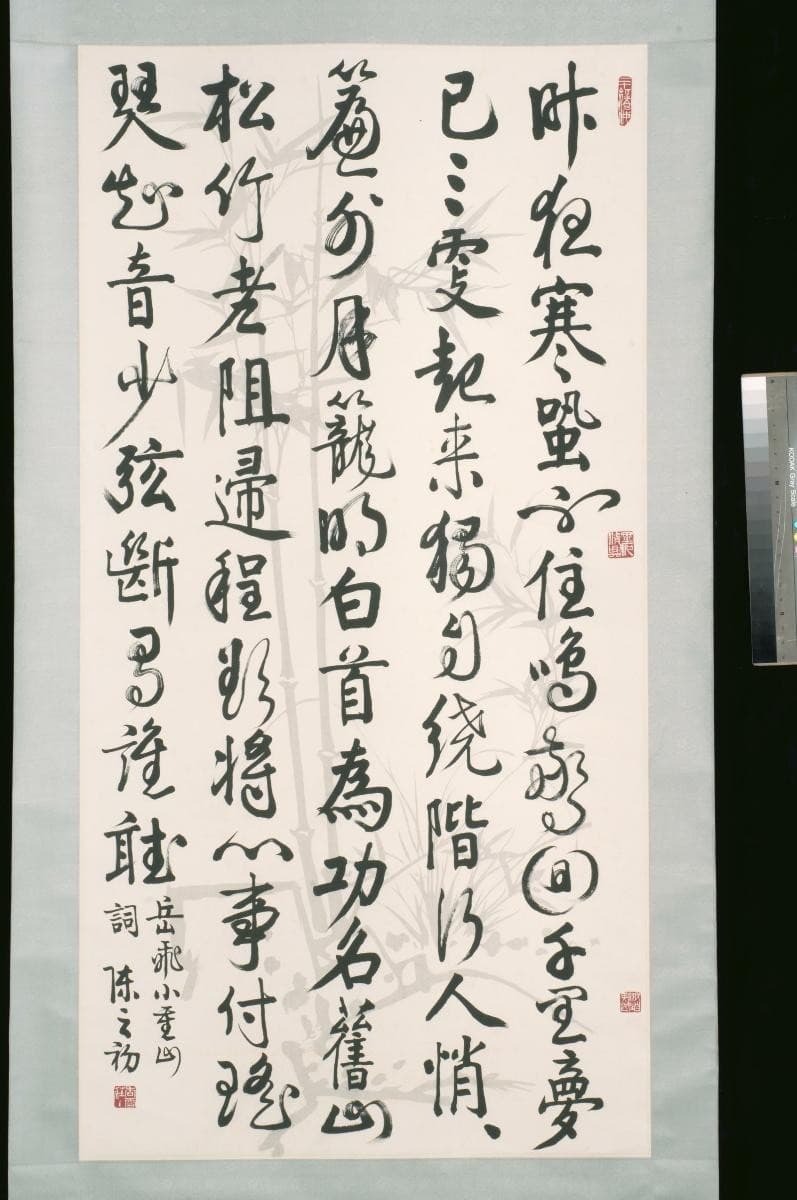 昨夜寒蛩不住鳴驚回千里夢
已三更起来獨自繞階行人悄、
簾外月籠明白首為功名舊山
松竹老阻歸程欲將心事付瑤
琴知音少弦斷有誰聽
岳飛小重山
詞 陳之初
KODAK Gray Scale